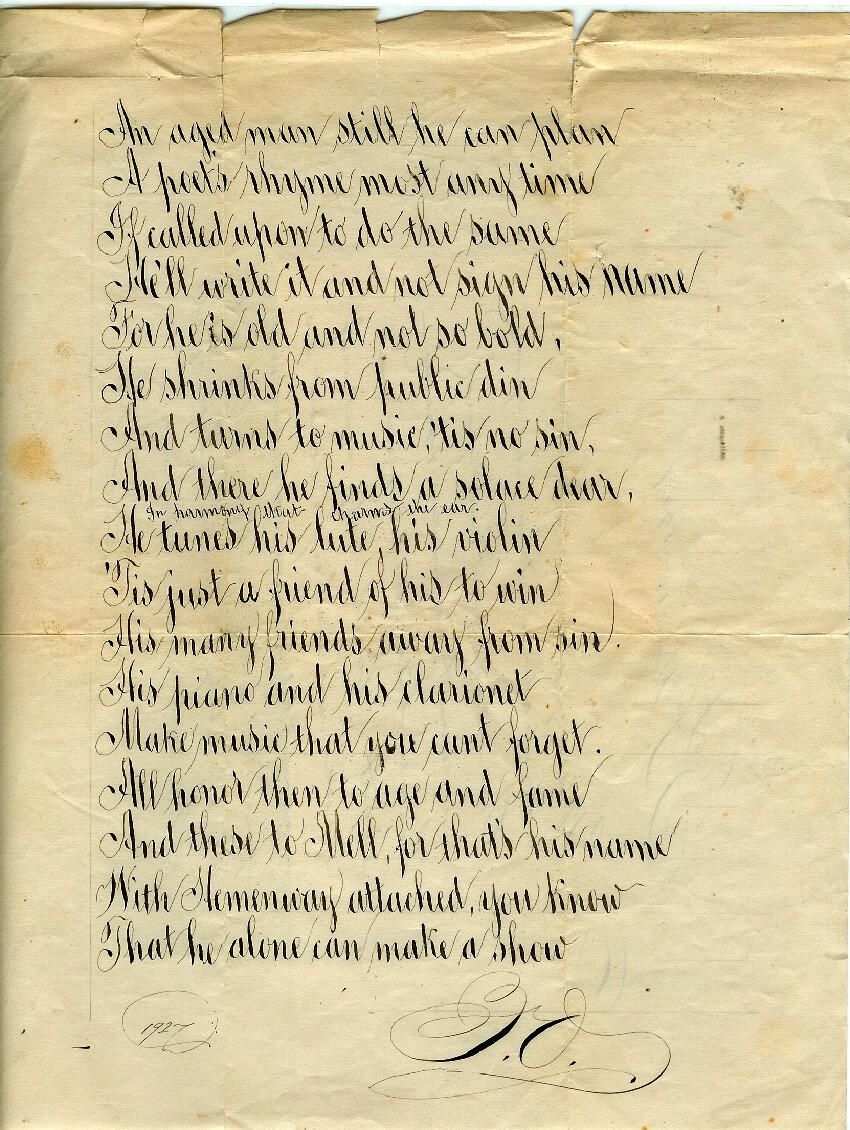 An aged man still he can plan
A poet's rhyme most any time
If called upon to do the same
He'll write it and not sign his name
For he is old and not so bold,
He shrinks from public din
And turns to music, 'tis no sin,
And there he finds a solace dear,
In harmony that charms the ear.
He tunes his lute, his violin
'Tis just a friend of his to win
His many friends away from sin.
His piano and his clarionet
Make music that you cant forget.
All honor then to age and fame
And these to Mell, for that's his name
With Hemenway attached, you know
That he alone can make a show
1927